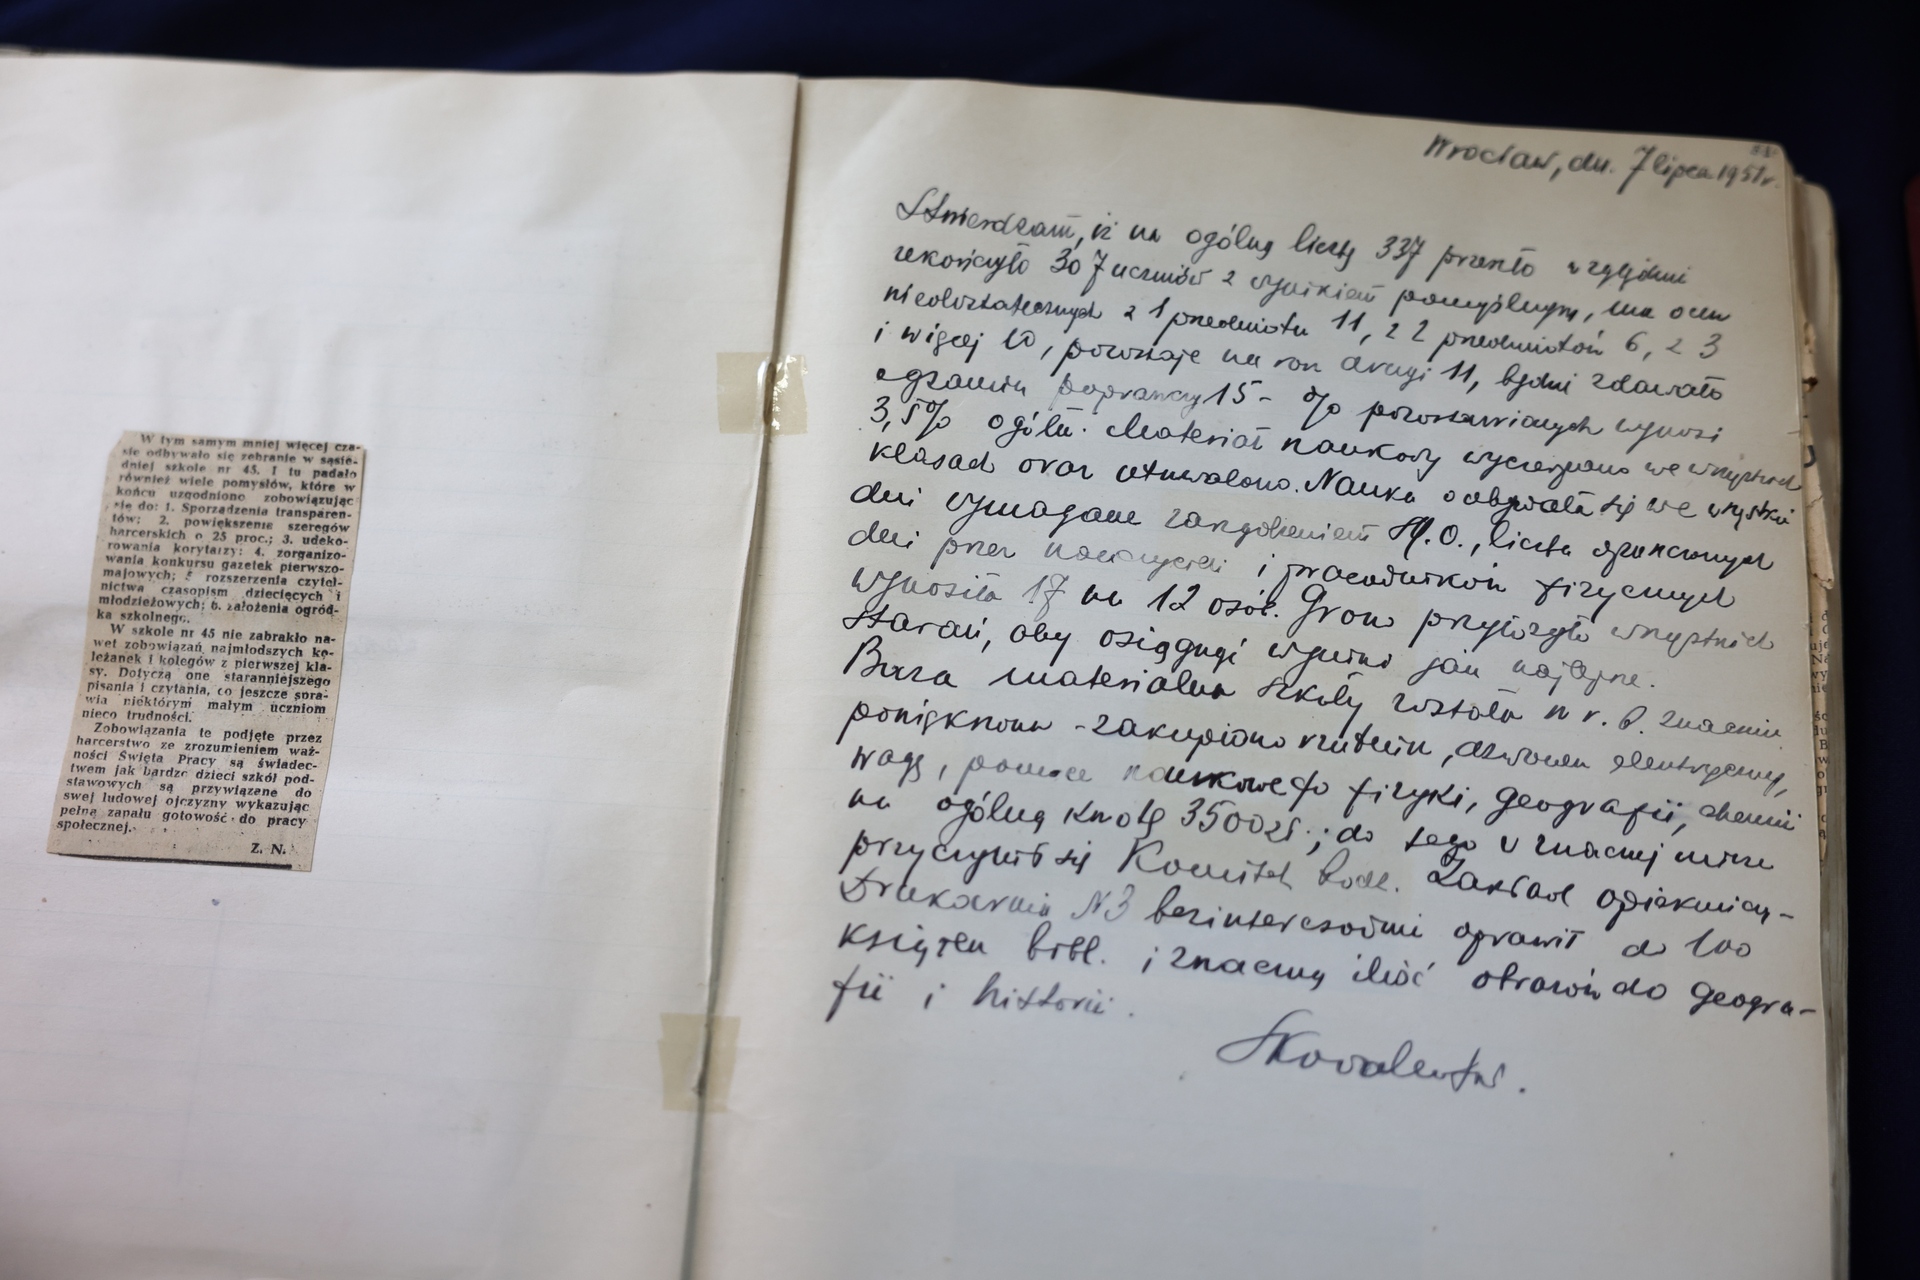 W tym samym mniej więcej cza-
sie odbywało się zebranie w sąsie-
dniej szkole nr 45. I tu padało
również wiele pomysłów, które w
końcu uzgodniono zobowiązując
się do: 1. Sporządzenia transparen-
tów; 2. powiększenie szeregów
harcerskich o 25 proc.; 3. udeko-
rowania korytarzy; 4. zorganizo-
wania konkursu gazetek pierwszo-
majowych; 5 rozszerzenia czytel-
nictwa czasopism dziecięcych i
młodzieżowych; 6. założenia ogród-
ka szkolnego.
W szkole nr 45 nie zabrakło na-
wet zobowiązań najmłodszych ko-
leżanek i kolegów z pierwszej kla-
sy. Dotyczą one staranniejszego
pisania i czytania, co jeszcze spra-
wia niektórym małym uczniom
nieco trudności.
Zobowiązania te podjęte przez
harcerstwo ze zrozumieniem waż-
ności Święta Pracy są świadec-
twem jak bardzo dzieci szkół pod-
stawowych są przywiązane do
swej ludowej ojczyzny wykazując
pełną zapału gotowość do pracy
społecznej.
Z. N.
Wrocław, dn. 7 lipca 1951 r.
Stwierdzam, iż na ogólną liczbę 337 przeszło względnie
zekończyło 307 uczniów z wynikiem pomyślnym, ma ocen
niedostatecznych z 1 przedmiotu 11, z 2 przedmiotów 6, z 3
i więcej 10, pozostaje na rok drugi 11, będzie zdawało
egzamin poprawczy 15 - % pozostawionych wynosi
3,5% ogółu. Materiał naukowy wyczerpano we wszystkich
klasach oraz utrwalono. Nauka odbywała się we wszystkie
dni wymagane zarządzeniem M.O., liczba opuszczonych
dni przez nauczycieli i pracowników fizycznych
wynosiła 17 na 12 osób. Grono przyłożyło wszystkich
starań, aby osiągnąć wyniki jak najlepsze.
Baza materialna szkoły została w r. b. znacznie
powiększona - zakupiono rzutnik, dzwonek elektryczny,
wagę, pomoce naukowe do fizyki, geografii, chemii
na ogólną kwotę 3500 zł.; do tego w znacznej mierze
przyczynił się Komitet Rodz. Zakład opiekuńczy-
Drukarnia N3 bezinteresownie oprawił do 100
książek bibl. i znaczną ilość obrazów do geogra-
fii i historii.